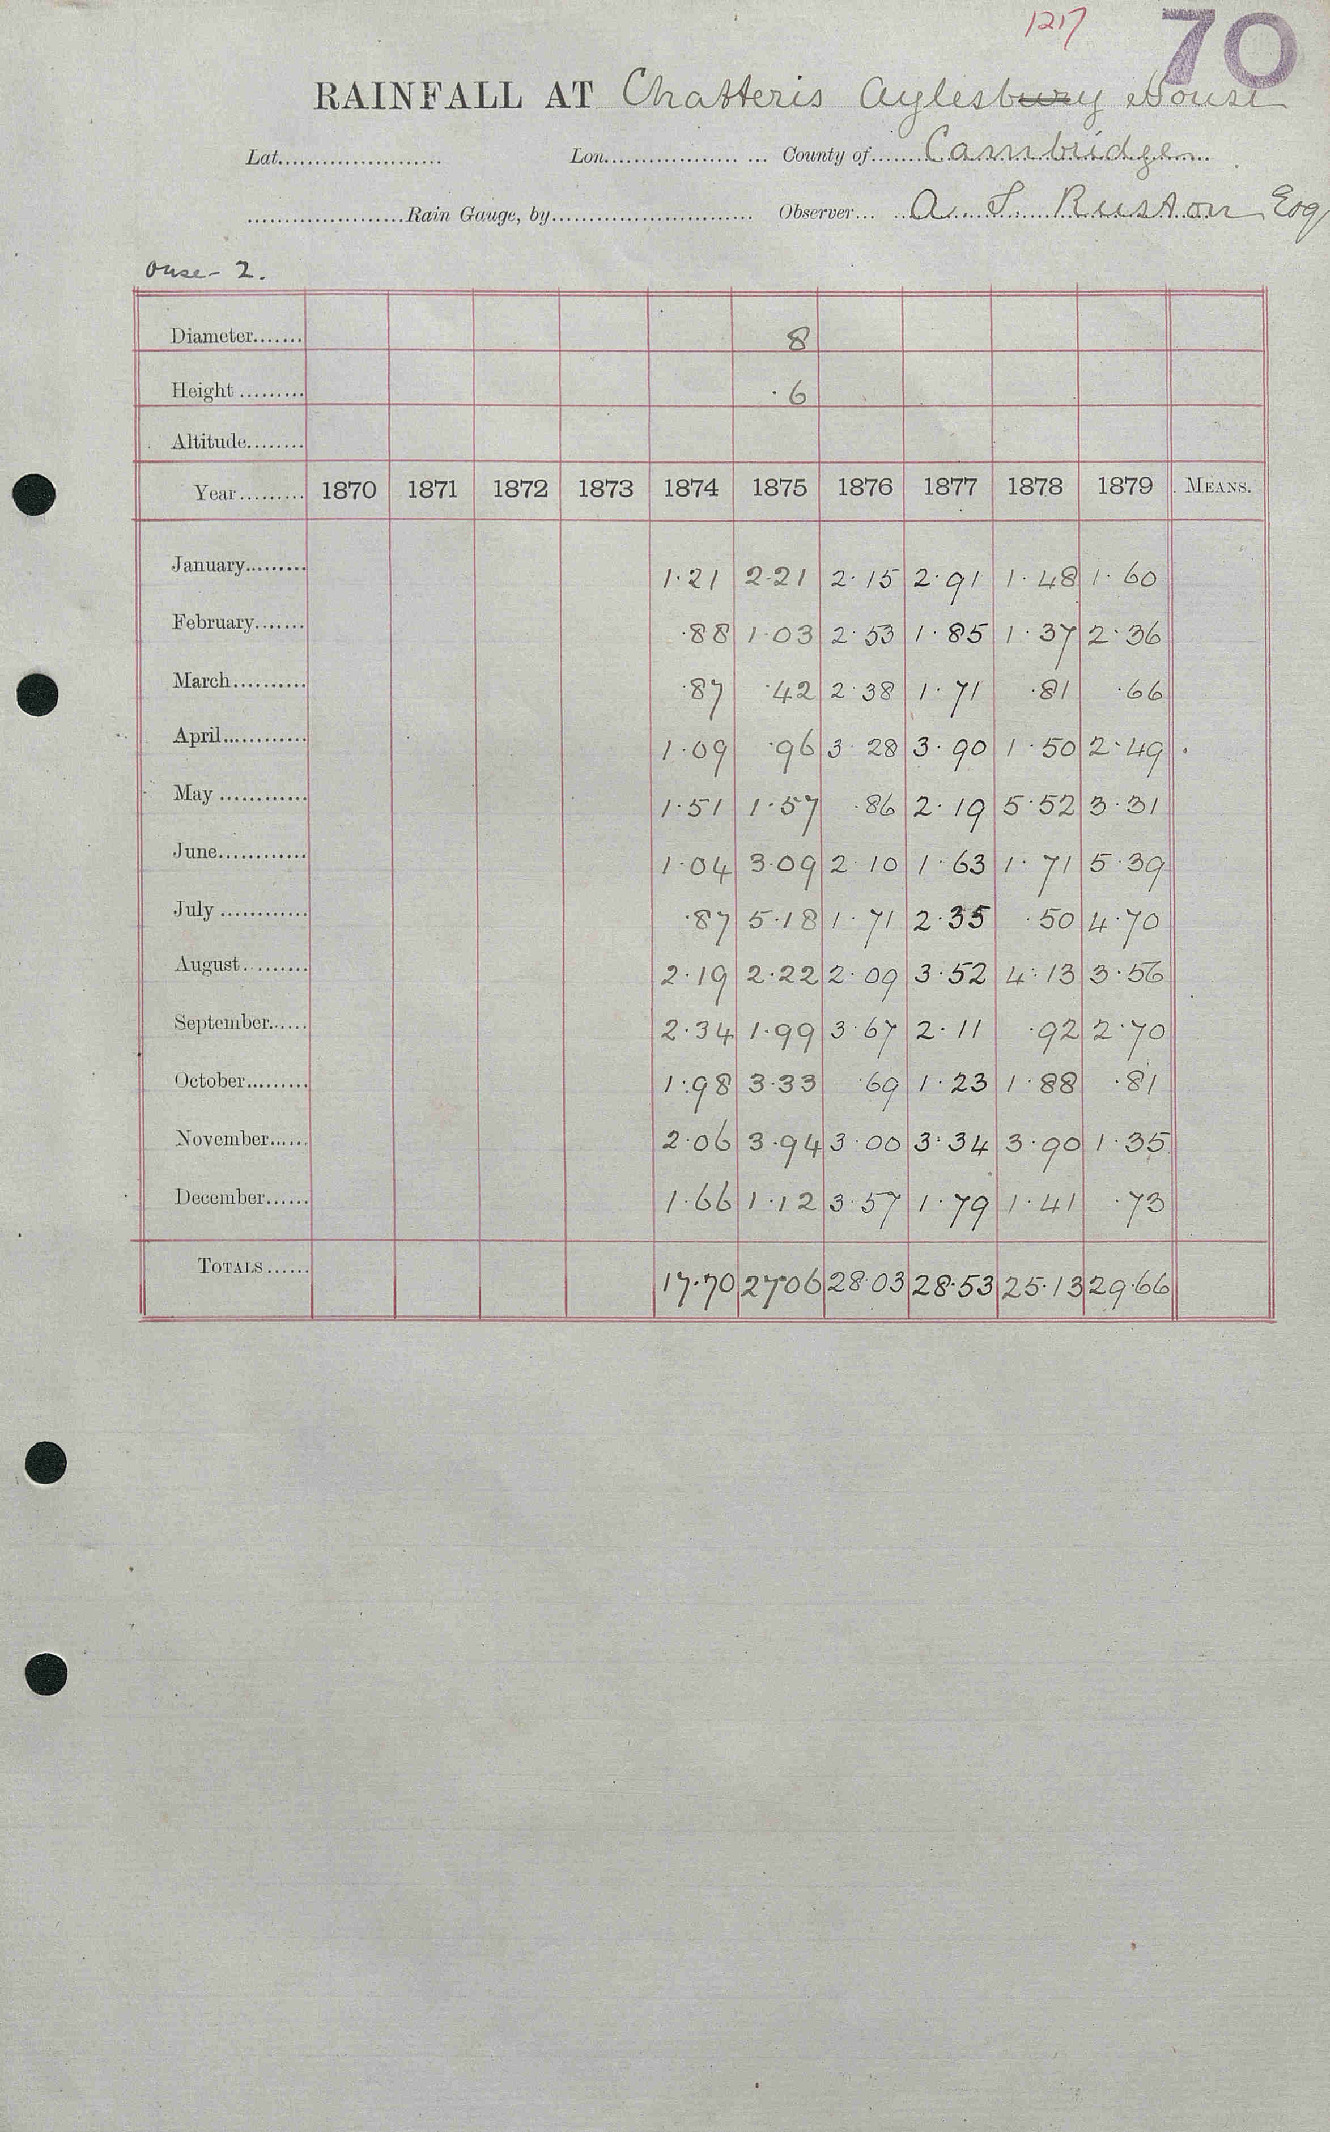 1217 70
RAINFALL AT Chatteris Aylesbury House
Lat...................... Lon...................... County of....... Cambridge
.....................Rain Gauge, by........................... Observer... A. S. Ruston Esq
Ouse - 2.
Diameter....... 8
Height ......... ·6
Altitude........
Year......... 1870 1871 1872 1873 1874 1875 1876 1877 1878 1879 MEANS.
January......... 1·21 2·21 2·15 2·91 1·48 1·60
February....... ·88 1·03 2·53 1·85 1·37 2·36
March.......... ·87 ·42 2·38 1·71 ·81 ·66
April............ 1·09 ·96 3·28 3·90 1·50 2·49
May ............ 1·51 1·57 ·86 2·19 5·52 3·31
June............ 1·04 3·09 2·10 1·63 1·71 5·39
July ............ ·87 5·18 1·71 2·35 ·50 4·70
August......... 2·19 2·22 2·09 3·52 4·13 3·56
September...... 2·34 1·99 3·67 2·11 ·92 2·70
October......... 1·98 3·33 ·69 1·23 1·88 ·81
November...... 2·06 3·94 3·00 3·34 3·90 1·35
December...... 1·66 1·12 3·57 1·79 1·41 ·73
TOTALS...... 17·70 27·06 28·03 28·53 25·13 29·66